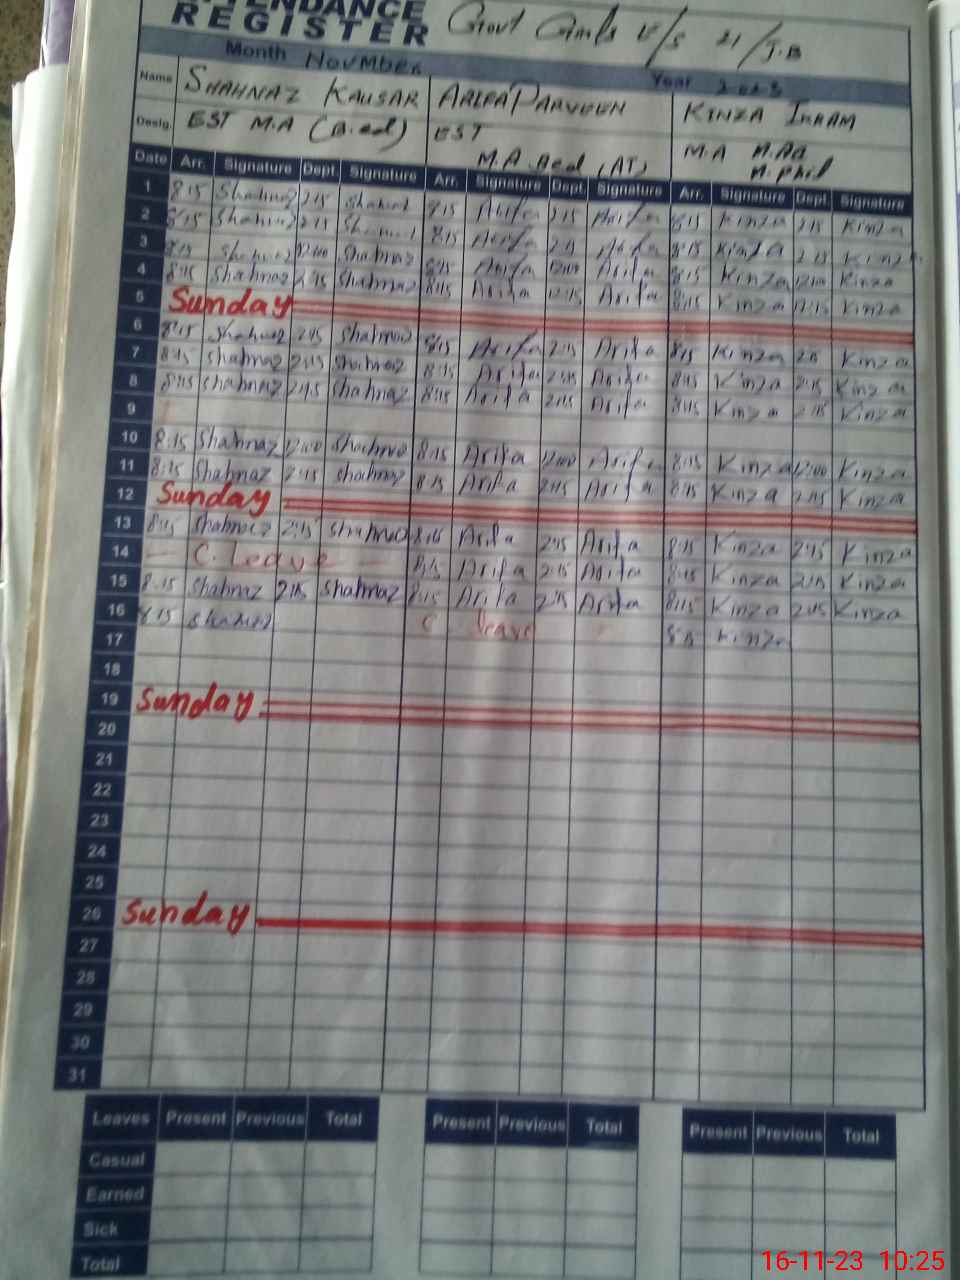 ATTENDANCE
REGISTER Govt Girls E/S 21/J.B
Month November Year 2023
Name SHAHNAZ KAUSAR ARIFA PARVEEN KINZA IKRAM
Desig. EST M.A (B.ed) EST M.A Bed (AT) M.A M.Phil
Date Arr. Signature Dept. Signature Arr. Signature Dept. Signature Arr. Signature Dept. Signature
1 8:15 Shahnaz 2:15 Shahnaz 8:15 Arifa 2:15 Arifa 8:15 Kinza 2:15 Kinza
2 8:15 Shahnaz 2:15 Shahnaz 8:15 Arifa 2:15 Arifa 8:15 Kinza 2:15 Kinza
3 8:15 Shahnaz 12:00 Shahnaz 8:15 Arifa 12:00 Arifa 8:15 Kinza 12:00 Kinza
4 8:15 Shahnaz 2:15 Shahnaz 8:15 Arifa Arifa 8:15 Kinza Kinza
5 Sunday
6 8:15 Shahnaz 2:15 Shahnaz 8:15 Arifa 2:15 Arifa 8:15 Kinza Kinza
7 8:15 Shahnaz 2:15 Shahnaz 8:15 Arifa 2:15 Arifa 8:15 Kinza 2:15 Kinza
8 8:15 Shahnaz 2:15 Shahnaz 8:15 Arifa 2:15 Arifa 8:15 Kinza 2:15 Kinza
9
10 8:15 Shahnaz 12:00 Shahnaz 8:15 Arifa 12:00 Arifa 8:15 Kinza 12:00 Kinza
11 8:15 Shahnaz 2:15 Shahnaz 8:15 Arifa 2:15 Arifa 8:15 Kinza 2:15 Kinza
12 Sunday
13 8:15 Shahnaz 2:15 Shahnaz 8:15 Arifa 2:15 Arifa 8:15 Kinza 2:15 Kinza
14 — C. Leave — 8:15 Arifa 2:15 Arifa 8:15 Kinza 2:15 Kinza
15 8:15 Shahnaz 2:15 Shahnaz 8:15 Arifa 2:15 Arifa 8:15 Kinza 2:15 Kinza
16 8:15 Shahnaz C leave 8:15 Kinza
17
18
19 Sunday
20
21
22
23
24
25
26 Sunday
27
28
29
30
31
Leaves Present Previous Total Present Previous Total Present Previous Total
Casual
Earned
Sick
Total
16-11-23 10:25